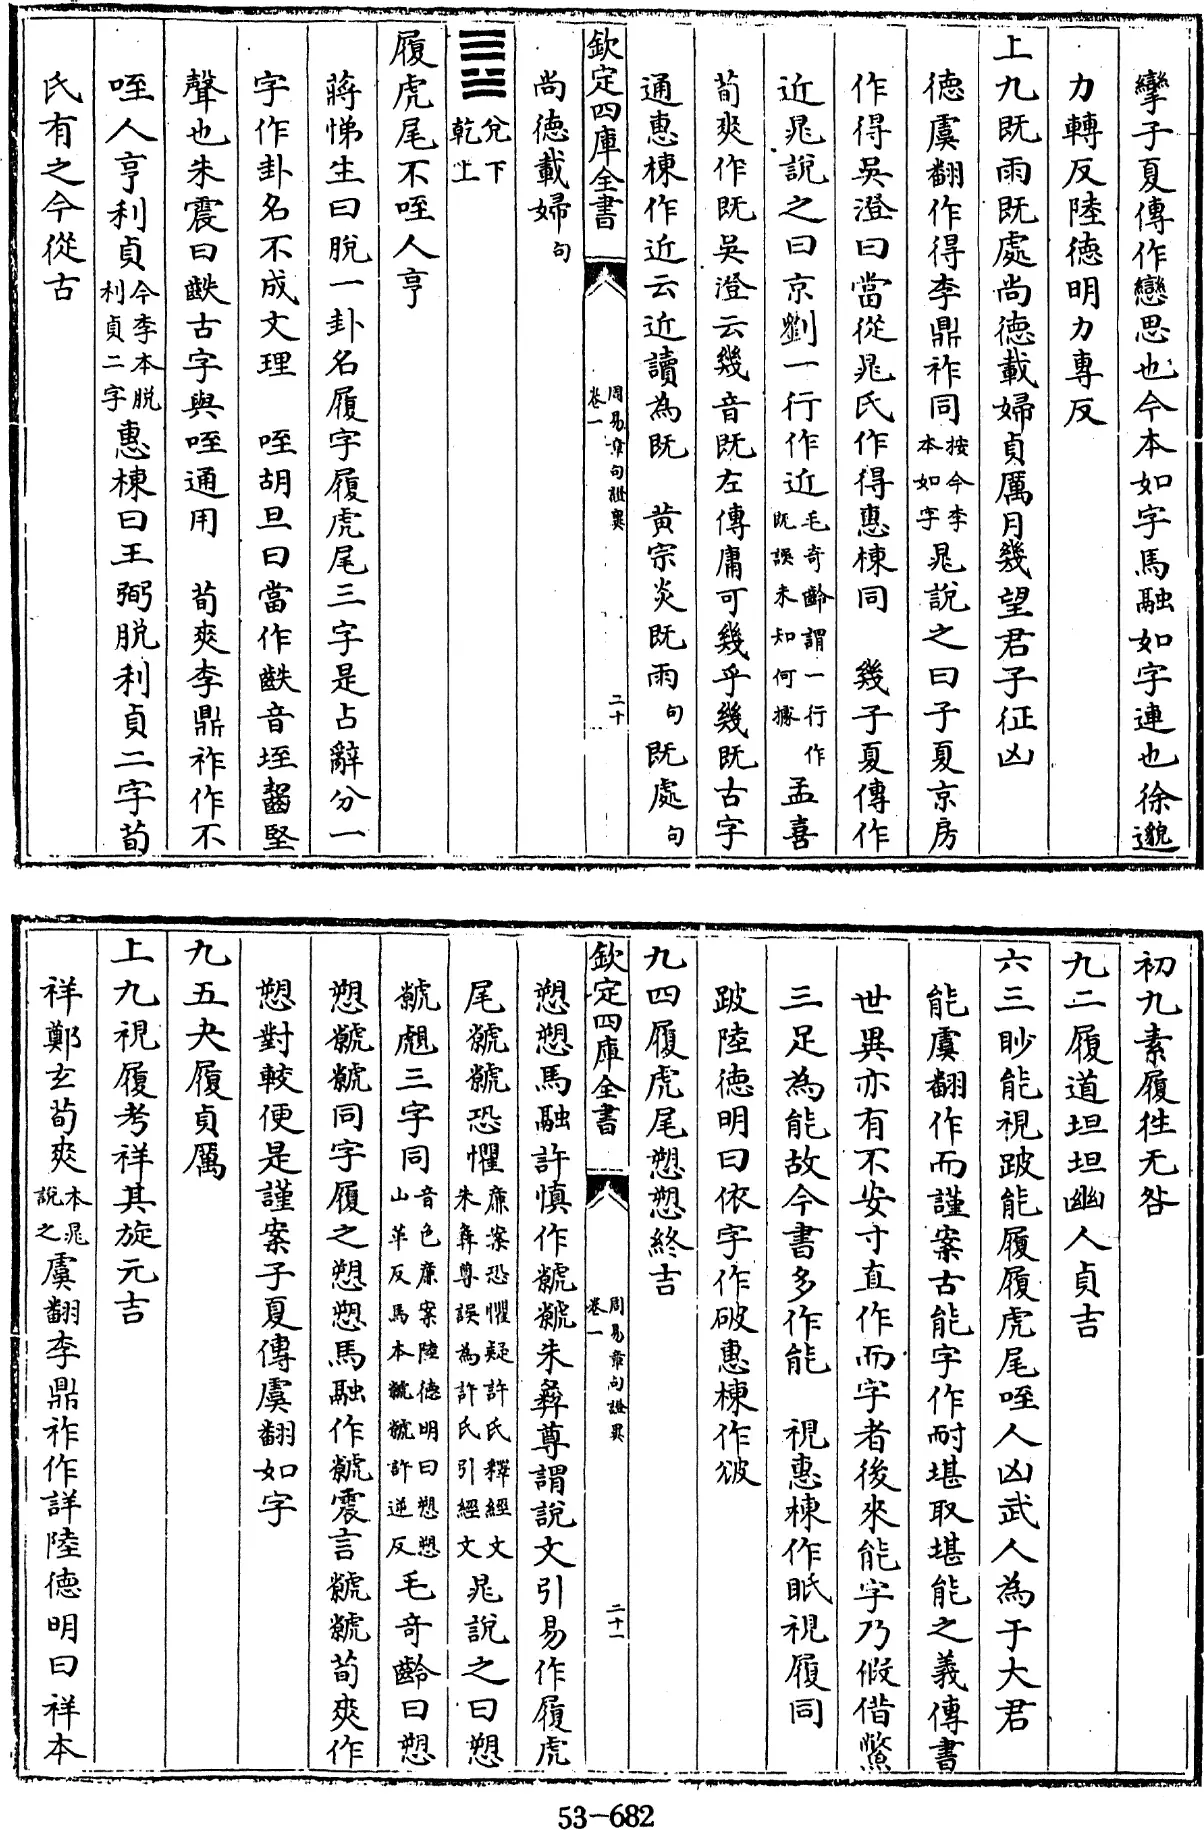 攣子夏傳作戀思也今本如字馬融如字連也徐邈
力轉反陸德明力專反
上九既雨既處尚德載婦貞厲月幾望君子征凶
德虞翻作得李鼎祚同按今李本如字晁說之曰子夏京房
作得吳澄曰當從晁氏作得惠棟同　幾子夏傳作
近晁說之曰京劉一行作近毛奇齡謂一行作既誤未知何據孟喜
荀爽作既吳澄云幾音既左傳庸可幾乎幾既古字
通惠棟作近云近讀為既　黃宗炎既雨句既處句
欽定四庫全書　周易章句證異　卷一　二十
尚德載婦句
䷉兌下乾上
履虎尾不咥人亨
蔣悌生曰脫一卦名履字履虎尾三字是占辭分一
字作卦名不成文理　咥胡旦曰當作𪘏音垤齧堅
聲也朱震曰𪘏古字與咥通用　荀爽李鼎祚作不
咥人亨利貞今李本脫利貞二字惠棟曰王弼脫利貞二字荀
氏有之今從古
初九素履往无咎
九二履道坦坦幽人貞吉
六三眇能視跛能履履虎尾咥人凶武人為于大君
能虞翻作而謹案古能字作耐堪取堪能之義傳書
世異亦有不安寸直作而字者後來能字乃假借鱉
三足為能故今書多作能　視惠棟作眂視履同
跛陸德明曰依字作破惠棟作𤿑
九四履虎尾愬愬終吉
欽定四庫全書　周易章句證異　卷一　二十一
愬愬馬融許慎作虩虩朱彝尊謂說文引易作履虎
尾虩虩恐懼廉案恐懼疑許氏釋經文朱彝尊誤為許氏引經文晁說之曰愬
虩䖙三字同音色廉案陸德明曰愬愬山革反馬本虩虩許逆反毛奇齡曰愬
愬虩虩同字履之愬愬馬融作虩震言虩虩荀爽作
愬對較便是謹案子夏傳虞翻如字
九五夬履貞厲
上九視履考祥其旋元吉
祥鄭玄荀爽本晁說之虞翻李鼎祚作詳陸德明曰祥本
53-682